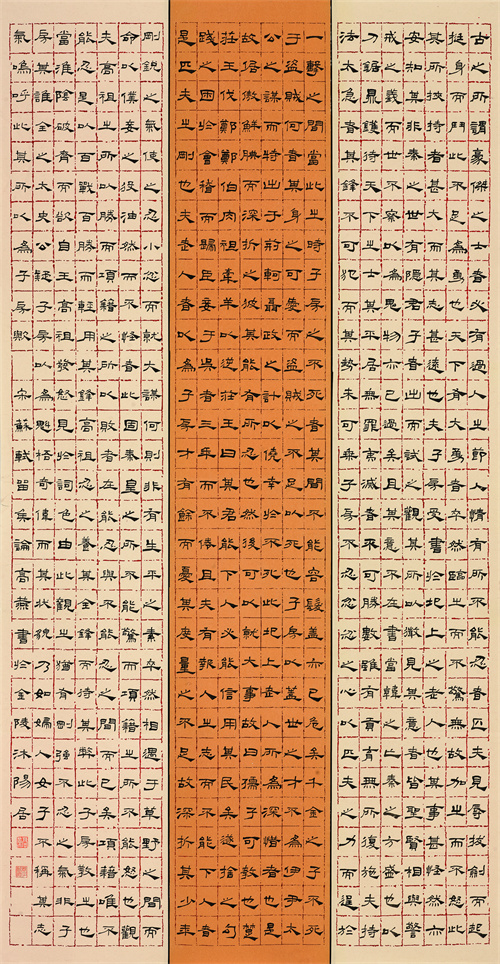 古之所謂豪傑之士者必有過人之節人情有所不能忍者匹夫見辱拔劍而起
挺身而鬥此不足為勇也天下有大勇者卒然臨之而不驚無故加之而不怒此
其所挾持者甚大而其志甚遠也夫子房受書於圯上之老人也其事甚怪然亦
安知其非秦之世有隱君子者出而試之觀其所以微見其意者皆聖賢相與警
戒之義而世不察以為鬼物亦已過矣且其意不在書當韓之亡秦之方盛也以
刀鋸鼎鑊待天下之士其平居無罪夷滅者不可勝數雖有賁育無所復施夫持
法太急者其鋒不可犯而其勢未可乘子房不忍忿忿之心以匹夫之力而逞於
一擊之間當此之時子房之不死者其間不能容髮蓋亦已危矣千金之子不死
於盜賊何者其身之可愛而盜賊之不足以死也子房以蓋世之才不為伊尹太
公之謀而特出於荊軻聶政之計以僥倖於不死此圯上老人所為深惜者也是
故倨傲鮮腆而深折之彼其能有所忍也然後可以就大事故曰孺子可教也楚
莊王伐鄭鄭伯肉袒牽羊以逆莊王曰其君能下人必能信用其民矣遂捨之句
踐之困於會稽而歸臣妾於吳者三年而不倦且夫有報人之志而不能下人者
是匹夫之剛也夫老人者以為子房才有餘而憂其度量之不足故深折其少年
剛銳之氣使之忍小忿而就大謀何則非有生平之素卒然相遇於草野之間而
命以僕妾之役油然而不怪者此固秦皇之所不能驚而項籍之所不能怒也觀
夫高祖之所以勝而項籍之所以敗者在能忍與不能忍之間而已矣項籍唯不
能忍是以百戰百勝而輕用其鋒高祖忍之養其全鋒而待其弊此子房教之也
當淮陰破齊而欲自王高祖發怒見於詞色由此觀之猶有剛強不忍之氣非子
房其誰全之太史公疑子房以為魁梧奇偉而其狀貌乃如婦人女子不稱其志
氣嗚呼此其所以為子房歟 宋蘇軾留矦論高燕書於金陵沐陽居